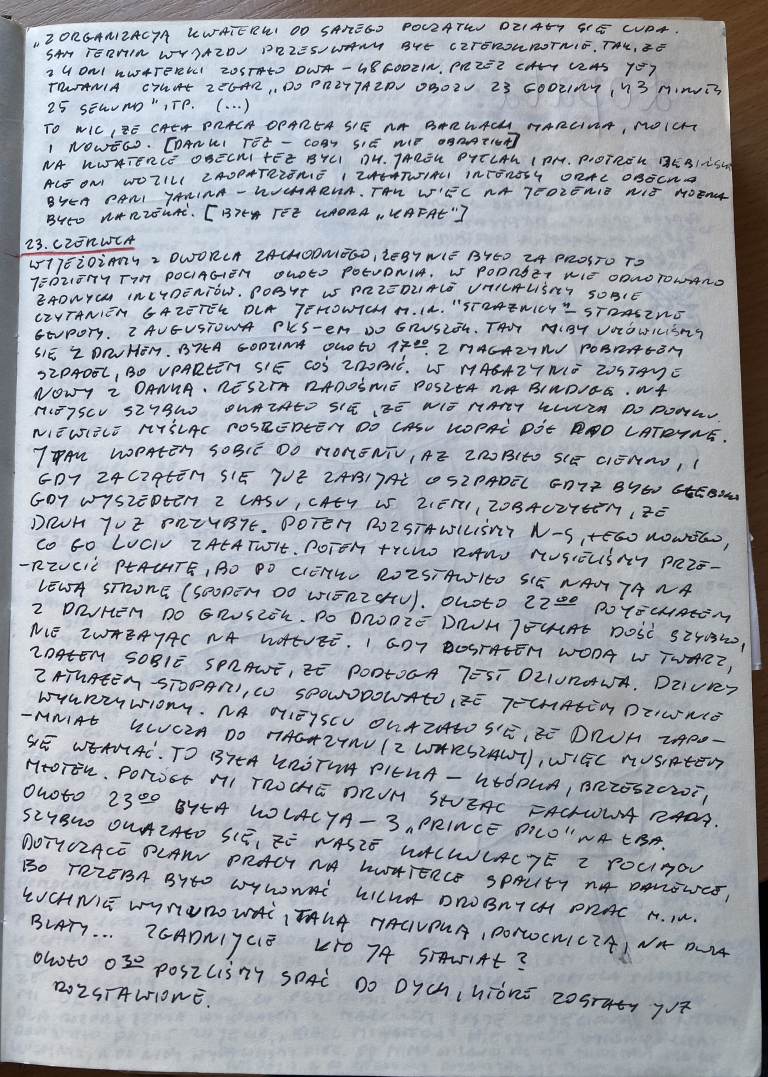 "Z ORGANIZACJĄ KWATERKI OD SAMEGO POCZĄTKU DZIAŁY SIĘ CUDA.
SAM TERMIN WYJAZDU PRZESUWANY BYŁ CZTEROKROTNIE. TAK, ŻE
Z 4 DNI KWATERKI ZOSTAŁO DWA – 48 GODZIN. PRZEZ CAŁY CZAS JEJ
TRWANIA CYKAŁ ZEGAR „DO PRZYJAZDU OBOZU 23 GODZINY, 43 MINUTY
25 SEKUND", ITP. (...)
TO NIC, ŻE CAŁA PRACA OPARŁA SIĘ NA BARKACH MARCINA, MOICH
I NOWEGO. [DANKI TEŻ – COBY SIĘ NIE OBRAZIŁA]
NA KWATERCE OBECNI TEŻ BYLI DH. JAREK PYTLAK I DH. PIOTREK
ALE ONI WOZILI ZAOPATRZENIE I ZAŁATWIALI INTERESY ORAZ OBECNA
BYŁA PANI JANINA – KUCHARKA. TAK WIĘC NA JEDZENIE NIE MOŻNA
BYŁO NARZEKAĆ. [BYŁA TEŻ KADRA „KAFAŁ"]
23. CZERWCA
WYJEŻDŻAMY Z DWORCA ZACHODNIEGO, ŻEBY NIE BYŁO ZA PROSTO TO
JEDZIEMY TYM POCIĄGIEM OKOŁO POŁUDNIA. W PODRÓŻY NIE ODNOTOWANO
ŻADNYCH INCYDENTÓW. POBYT W PRZEDZIALE UMILALIŚMY SOBIE
CZYTANIEM GAZETEK DLA JEHOWYCH M.IN. "STRAŻNICY" – STRASZNE
GŁUPOTY. Z AUGUSTOWA PKS-EM DO GRUSZEK. TAM NIBY UMÓWILIŚMY
SIĘ Z DRUHEM. BYŁA GODZINA OKOŁO 17⁰⁰. Z MAGAZYNU POBRAŁEM
SZPADEL, BO UPARŁEM SIĘ COŚ ZROBIĆ. W MAGAZYNIE ZOSTAJE
NOWY Z DANKĄ. RESZTA RADOŚNIE POSZŁA NA BINDUGĘ. NA
MIEJSCU SZYBKO OKAZAŁO SIĘ, ŻE NIE MAMY KLUCZA DO DOMKU.
NIEWIELE MYŚLĄC POSZEDŁEM DO LASU KOPAĆ DÓŁ POD LATRYNĘ.
I TAK KOPAŁEM SOBIE DO MOMENTU, AŻ ZROBIŁO SIĘ CIEMNO, I
GDY ZACZĄŁEM SIĘ JUŻ ZABIJAĆ O SZPADEL GDYŻ BYŁO GŁĘBOKO
GDY WYSZEDŁEM Z LASU, CAŁY W ZIEMI, ZOBACZYŁEM, ŻE
DRUH JUŻ PRZYBYŁ. POTEM ROZSTAWILIŚMY N-S, TEGO NOWEGO,
CO GO LUCIU ZAŁATWIŁ. POTEM TYLKO RANO MUSIELIŚMY PRZE-
-RZUCIĆ PŁACHTĘ, BO PO CIEMKU ROZSTAWIŁO SIĘ NAM JĄ NA
LEWĄ STRONĘ (SPODEM DO WIERZCHU). OKOŁO 22⁰⁰ POJECHAŁEM
Z DRUHEM DO GRUSZEK. PO DRODZE DRUH JECHAŁ DOŚĆ SZYBKO,
NIE ZWAŻAJĄC NA KAŁUŻE. I GDY DOSTAŁEM WODĄ W TWARZ,
ZDAŁEM SOBIE SPRAWĘ, ŻE PODŁOGA JEST DZIURAWA. DZIURY
ZATKAŁEM STOPAMI, CO SPOWODOWAŁO, ŻE JECHAŁEM DZIWNIE
WYKRZYWIONY. NA MIEJSCU OKAZAŁO SIĘ, ŻE DRUH ZAPO-
-MNIAŁ KLUCZA DO MAGAZYNU (Z WARSZAWY), WIĘC MUSIAŁEM
SIĘ WŁAMAĆ. TO BYŁA KRÓTKA PIŁKA – KŁÓDKA, BRZESZCZOT,
MŁOTEK. POMÓGŁ MI TROCHĘ DRUH SŁUŻĄC FACHOWĄ RADĄ.
OKOŁO 23⁰⁰ BYŁA KOLACJA – 3 „PRINCE POLO" NA ŁBA.
SZYBKO OKAZAŁO SIĘ, ŻE NASZE KALKULACJE Z POCIĄGU
DOTYCZĄCE PLANU PRACY NA KWATERCE SPALIŁY NA PANEWCE,
BO TRZEBA BYŁO WYKONAĆ KILKA DROBNYCH PRAC M.IN.
KUCHNIĘ WYMUROWAĆ, TAKĄ MACIUPKĄ, POMOCNICZĄ, NA DWA
BLATY... ZGADNIJCIE KTO JĄ STAWIAŁ?
OKOŁO 0³⁰ POSZLIŚMY SPAĆ DO DYCH, KTÓRE ZOSTAŁY JUŻ
ROZSTAWIONE.